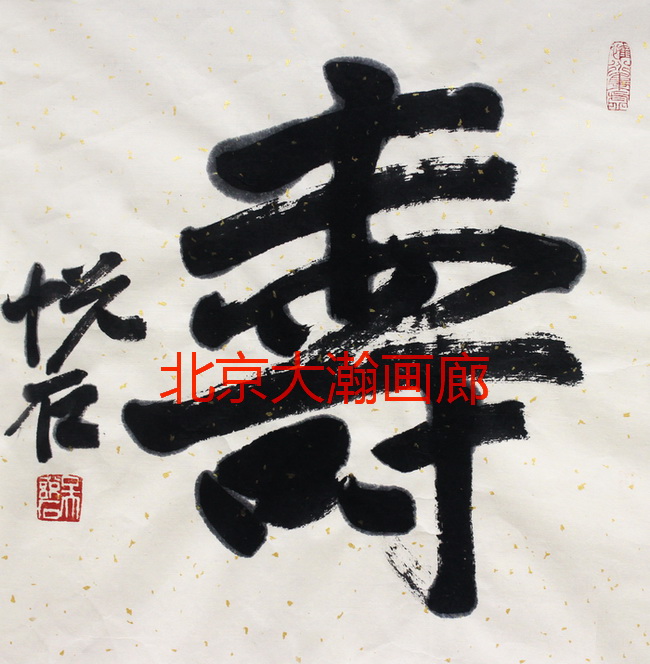 壽
悦石
北京大瀚画廊